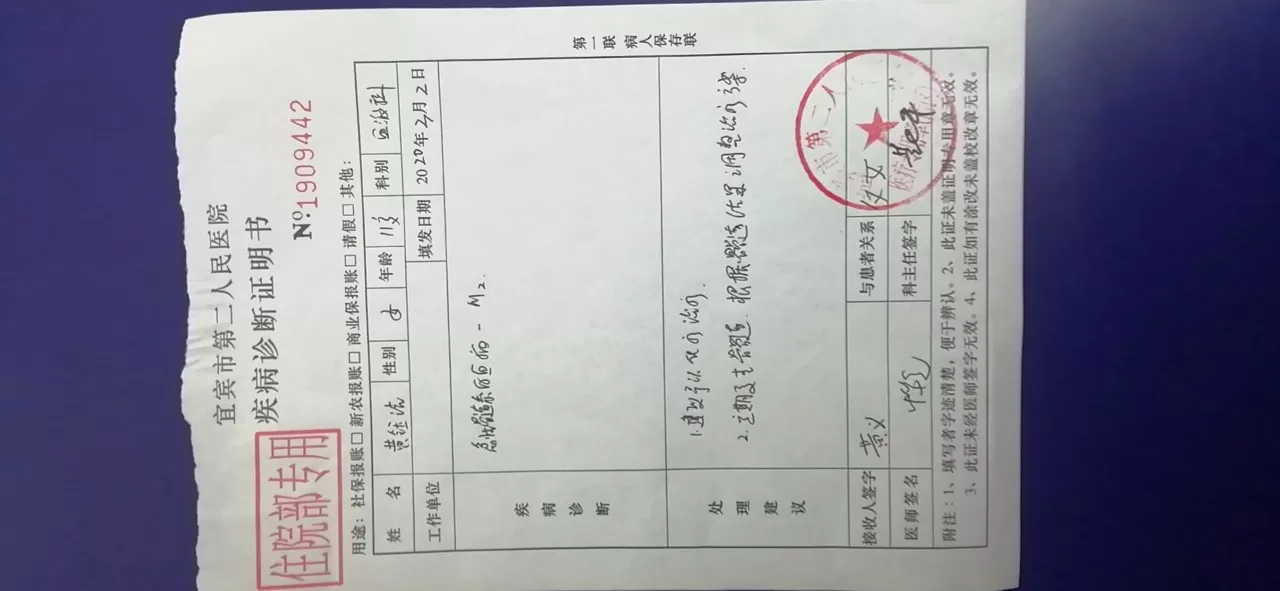 宜宾市第二人民医院
疾病诊断证明书
住院部专用
Nº:1909442
用途：社保报账□ 新农报账□ 商业保报账□ 请假□ 其他：
姓 名 性别 女 年龄 科别
工作单位 填发日期 2020年3月2日
疾病诊断
急性髓系白血病-M2.
处理建议
1.
2.定期复查骨髓，根据骨髓结果调整治疗方案.
接收人签字 黄义 与患者关系 父女
医师签名 科主任签字
市第二人
附注：1、填写者字迹清楚，便于辨认。2、此证未盖证明专用章无效。
3、此证未经医师签字无效。4、此证如有涂改未盖校改章无效。
第一联 病人保存联